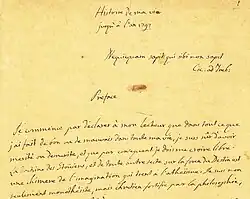 Histoire de ma vie
jusqu'à l'an 1797
Nequicquam sapit qui sibi non sapit
Cic: ad Treb:
Preface
Je commence par declarer à mon lecteur que dans tout ce que
j'ai fait de bon ou de mauvais dans toute ma vie, je suis sûr d'avoir
merité ou demerité, et que par consequent je dois me croire libre.
La doctrine des Stoiciens, et de toute autre secte sur la force du Destin est
une chimere de l'imagination qui tient à l'atheisme. Je suis non
seulement monotheiste, mais chretien fortifié par la philosophie,